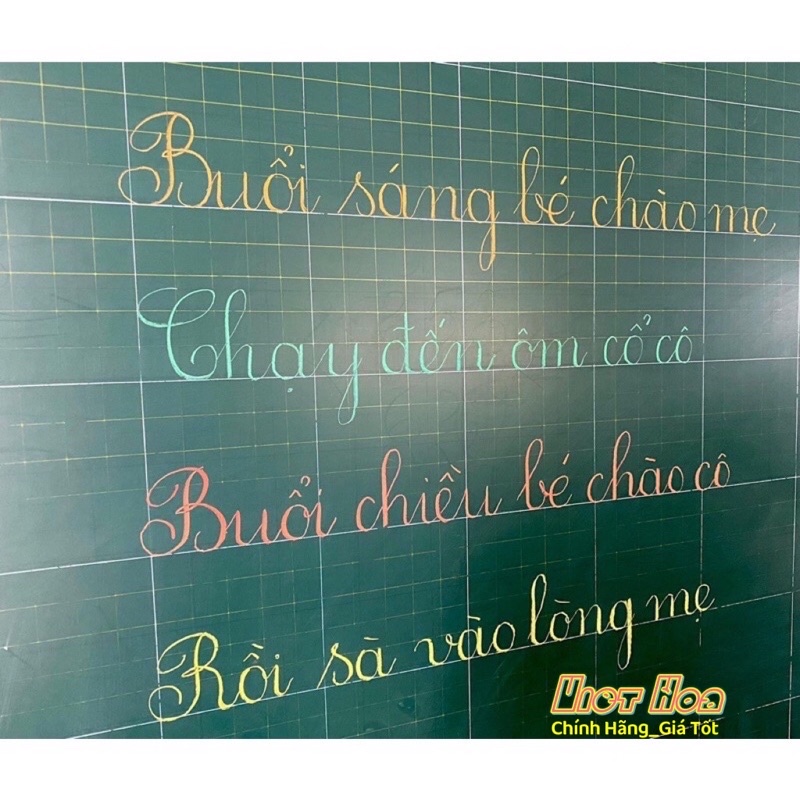 Buổi sáng bé chào mẹ
Chạy đến ôm cổ cô
Buổi chiều bé chào cô
Rồi sà vào lòng mẹ
Việt Hoa
Chính Hãng_Giá Tốt